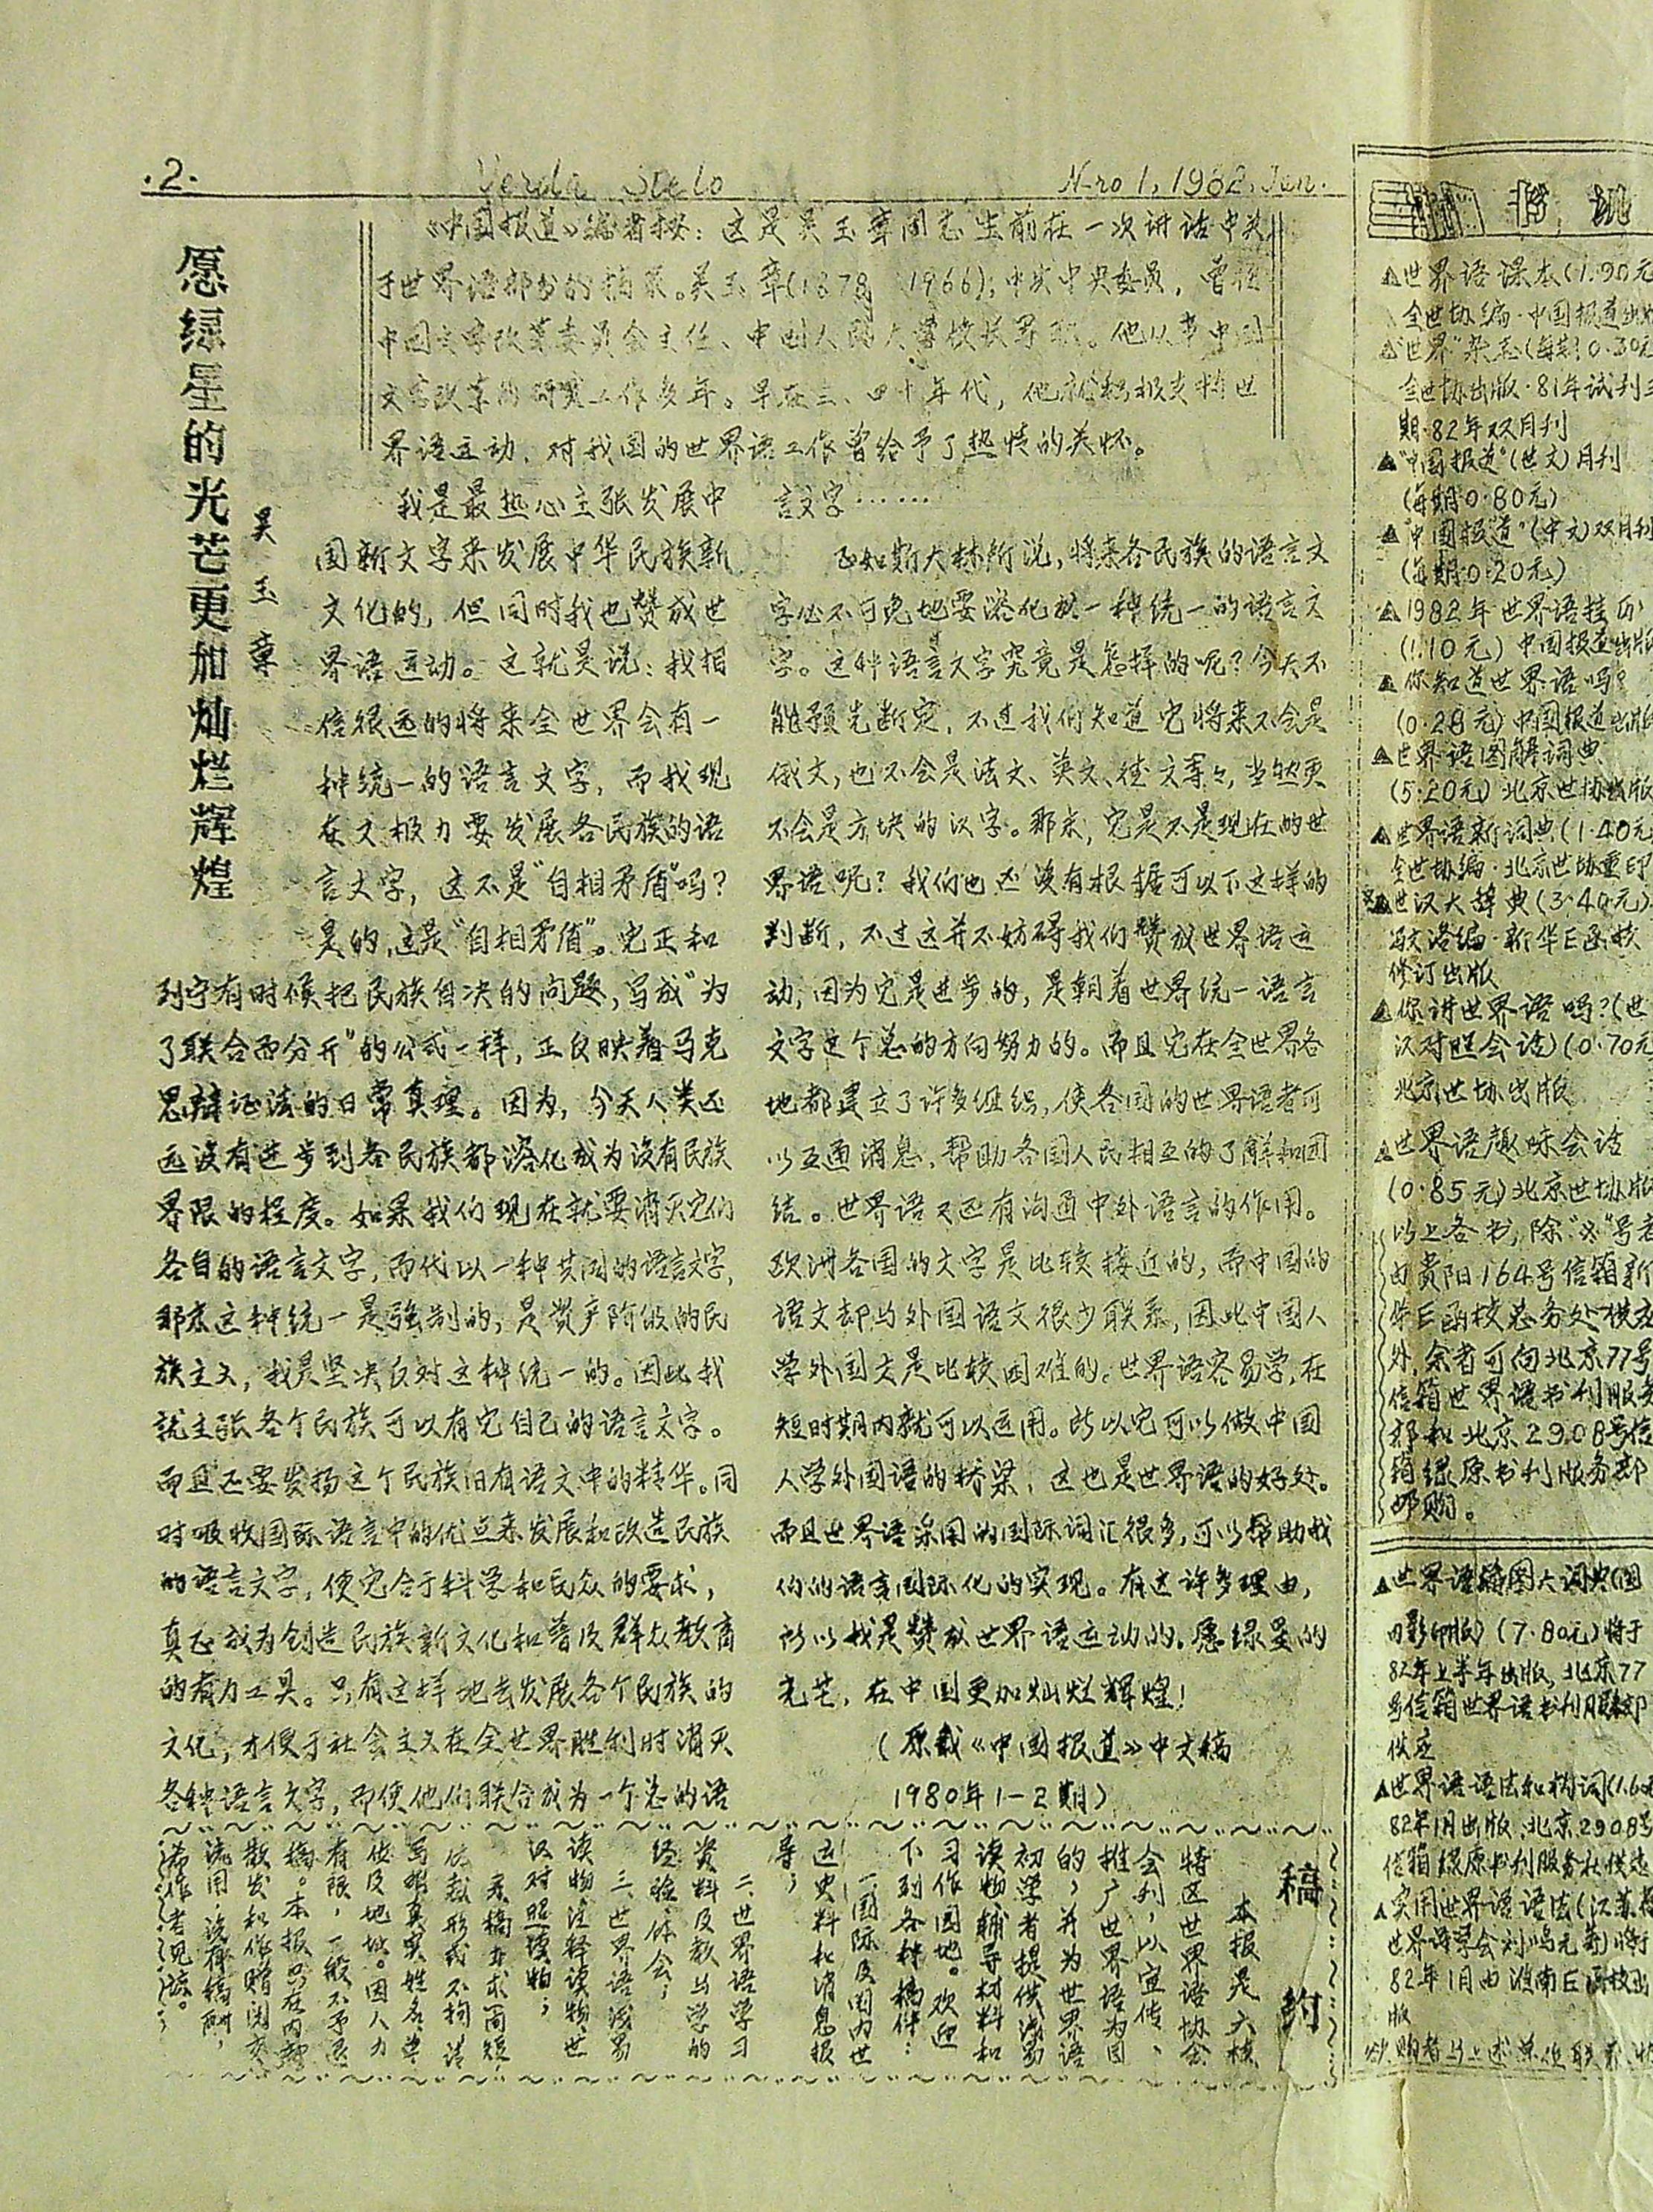 ·2·
Verda Stelo
N-ro 1, 1982, Jan.
愿绿星的光芒更加灿烂辉煌
吴玉章
《中国报道》编者按：这是吴玉章同志生前在一次讲话中关
于世界语部分的摘录。吴玉章(1878 1966)，中共中央委员，曾任
中国文字改革委员会主任、中国人民大学校长等职。他从事中国
文字改革的研究工作多年。早在三、四十年代，他就积极支持世
界语运动，对我国的世界语工作曾给予了热情的关怀。
我是最热心主张发展中
国新文字来发展中华民族新
文化的，但同时我也赞成世
界语运动。这就是说：我相
信很远的将来全世界会有一
种统一的语言文字，而我现
在又极力要发展各民族的语
言文字，这不是“自相矛盾”吗？
是的，这是“自相矛盾”。它正和
列宁有时候把民族自决的问题，写成“为
了联合而分开”的公式一样，正反映着马克
思辩证法的日常真理。因为，今天人类还
远没有进步到各民族都溶化成为没有民族
界限的程度。如果我们现在就要消灭它们
各自的语言文字，而代以一种共同的语言文字，
那末这种统一是强制的，是资产阶级的民
族主义，我是坚决反对这种统一的。因此我
就主张各个民族可以有它自己的语言文字。
而且还要发扬这个民族旧有语文中的精华。同
时吸收国际语言中的优点来发展和改造民族
的语言文字，使它合于科学和民众的要求，
真正成为创造民族新文化和普及群众教育
的有力工具。只有这样地去发展各个民族的
文化，才便于社会主义在全世界胜利时消灭
各种语言文字，而使他们联合成为一个总的语
言文字……
正如斯大林所说，将来各民族的语言文
字必不可免地要溶化成一种统一的语言文
字。这种语言文字究竟是怎样的呢？今天不
能预先断定，不过我们知道它将来不会是
俄文，也不会是法文、英文、德文等等，当然更
不会是方块的汉字。那末，它是不是现在的世
界语呢？我们也还没有根据可以下这样的
判断，不过这并不妨碍我们赞成世界语运
动，因为它是进步的，是朝着世界统一语言
文字这个总的方向努力的。而且它在全世界各
地都建立了许多组织，使各国的世界语者可
以互通消息，帮助各国人民相互的了解和团
结。世界语又还有沟通中外语言的作用。
欧洲各国的文字是比较接近的，而中国的
语文却与外国语文很少联系，因此中国人
学外国文是比较困难的。世界语容易学，在
短时期内就可以运用。所以它可以做中国
人学外国语的桥梁，这也是世界语的好处。
而且世界语采用的国际词汇很多，可以帮助我
们的语言国际化的实现。有这许多理由，
所以我是赞成世界语运动的。愿绿星的
光芒，在中国更加灿烂辉煌！
（原载《中国报道》中文稿
1980年1-2期）
稿约
本报是六枝
特区世界语协会
会刊，以宣传、
推广世界语为目
的，并为世界语
初学者提供浅易
读物辅导材料和
习作园地。欢迎
下列各种稿件：
一、国际及国内世
运史料和消息报
导；
二、世界语学习
资料及教与学的
经验、体会；
三、世界语浅易
读物、注释读物、世
汉对照读物；
来稿力求简短，
体裁形式不拘，请
写明真实姓名、单
位及地址。因人力
有限，一般不予退
稿。本报只在内部
散发和作赠阅交
流用，没有稿酬，
希作者见谅。
书 讯
▲世界语课本(1.90元
全世协编·中国报道出
▲“世界”杂志(每期0.30元
全世协出版·81年试刊
期·82年双月刊
▲“中国报道”(世文)月刊
(每期0.80元)
▲“中国报道”(中文)双月刊
(每期0.20元)
▲1982年世界语挂历
(1.10元)中国报道出版
▲你知道世界语吗？
(0.28元)中国报道出版
▲世界语图解词典
(5.20元)北京世协出版
▲世界语新词典(1.40元
全世协编·北京世协重印
※▲世汉大辞典(3.40元)
冯文洛编·新华E函校
修订出版
▲你讲世界语吗？(世
汉对照会话)(0.70元
北京世协出版
▲世界语趣味会话
(0.85元)北京世协版
以上各书，除“※”号者
由贵阳164号信箱新
华E函校总务处供应
外，余者可向北京77号
信箱世界语书刊服务
部和北京2908号信
箱绿原书刊服务部
邮购。
▲世界语插图大词典(国
内影印版)(7.80元)将于
82年上半年出版，北京77
号信箱世界语书刊服务部
供应
▲世界语语法和构词(1.60
82年1月出版，北京2908号
信箱绿原书刊服务社供应
▲实用世界语语法(江苏
世界语学会刘鸣元著)将于
82年1月由淮南E函校出
版
购者与上述单位联系